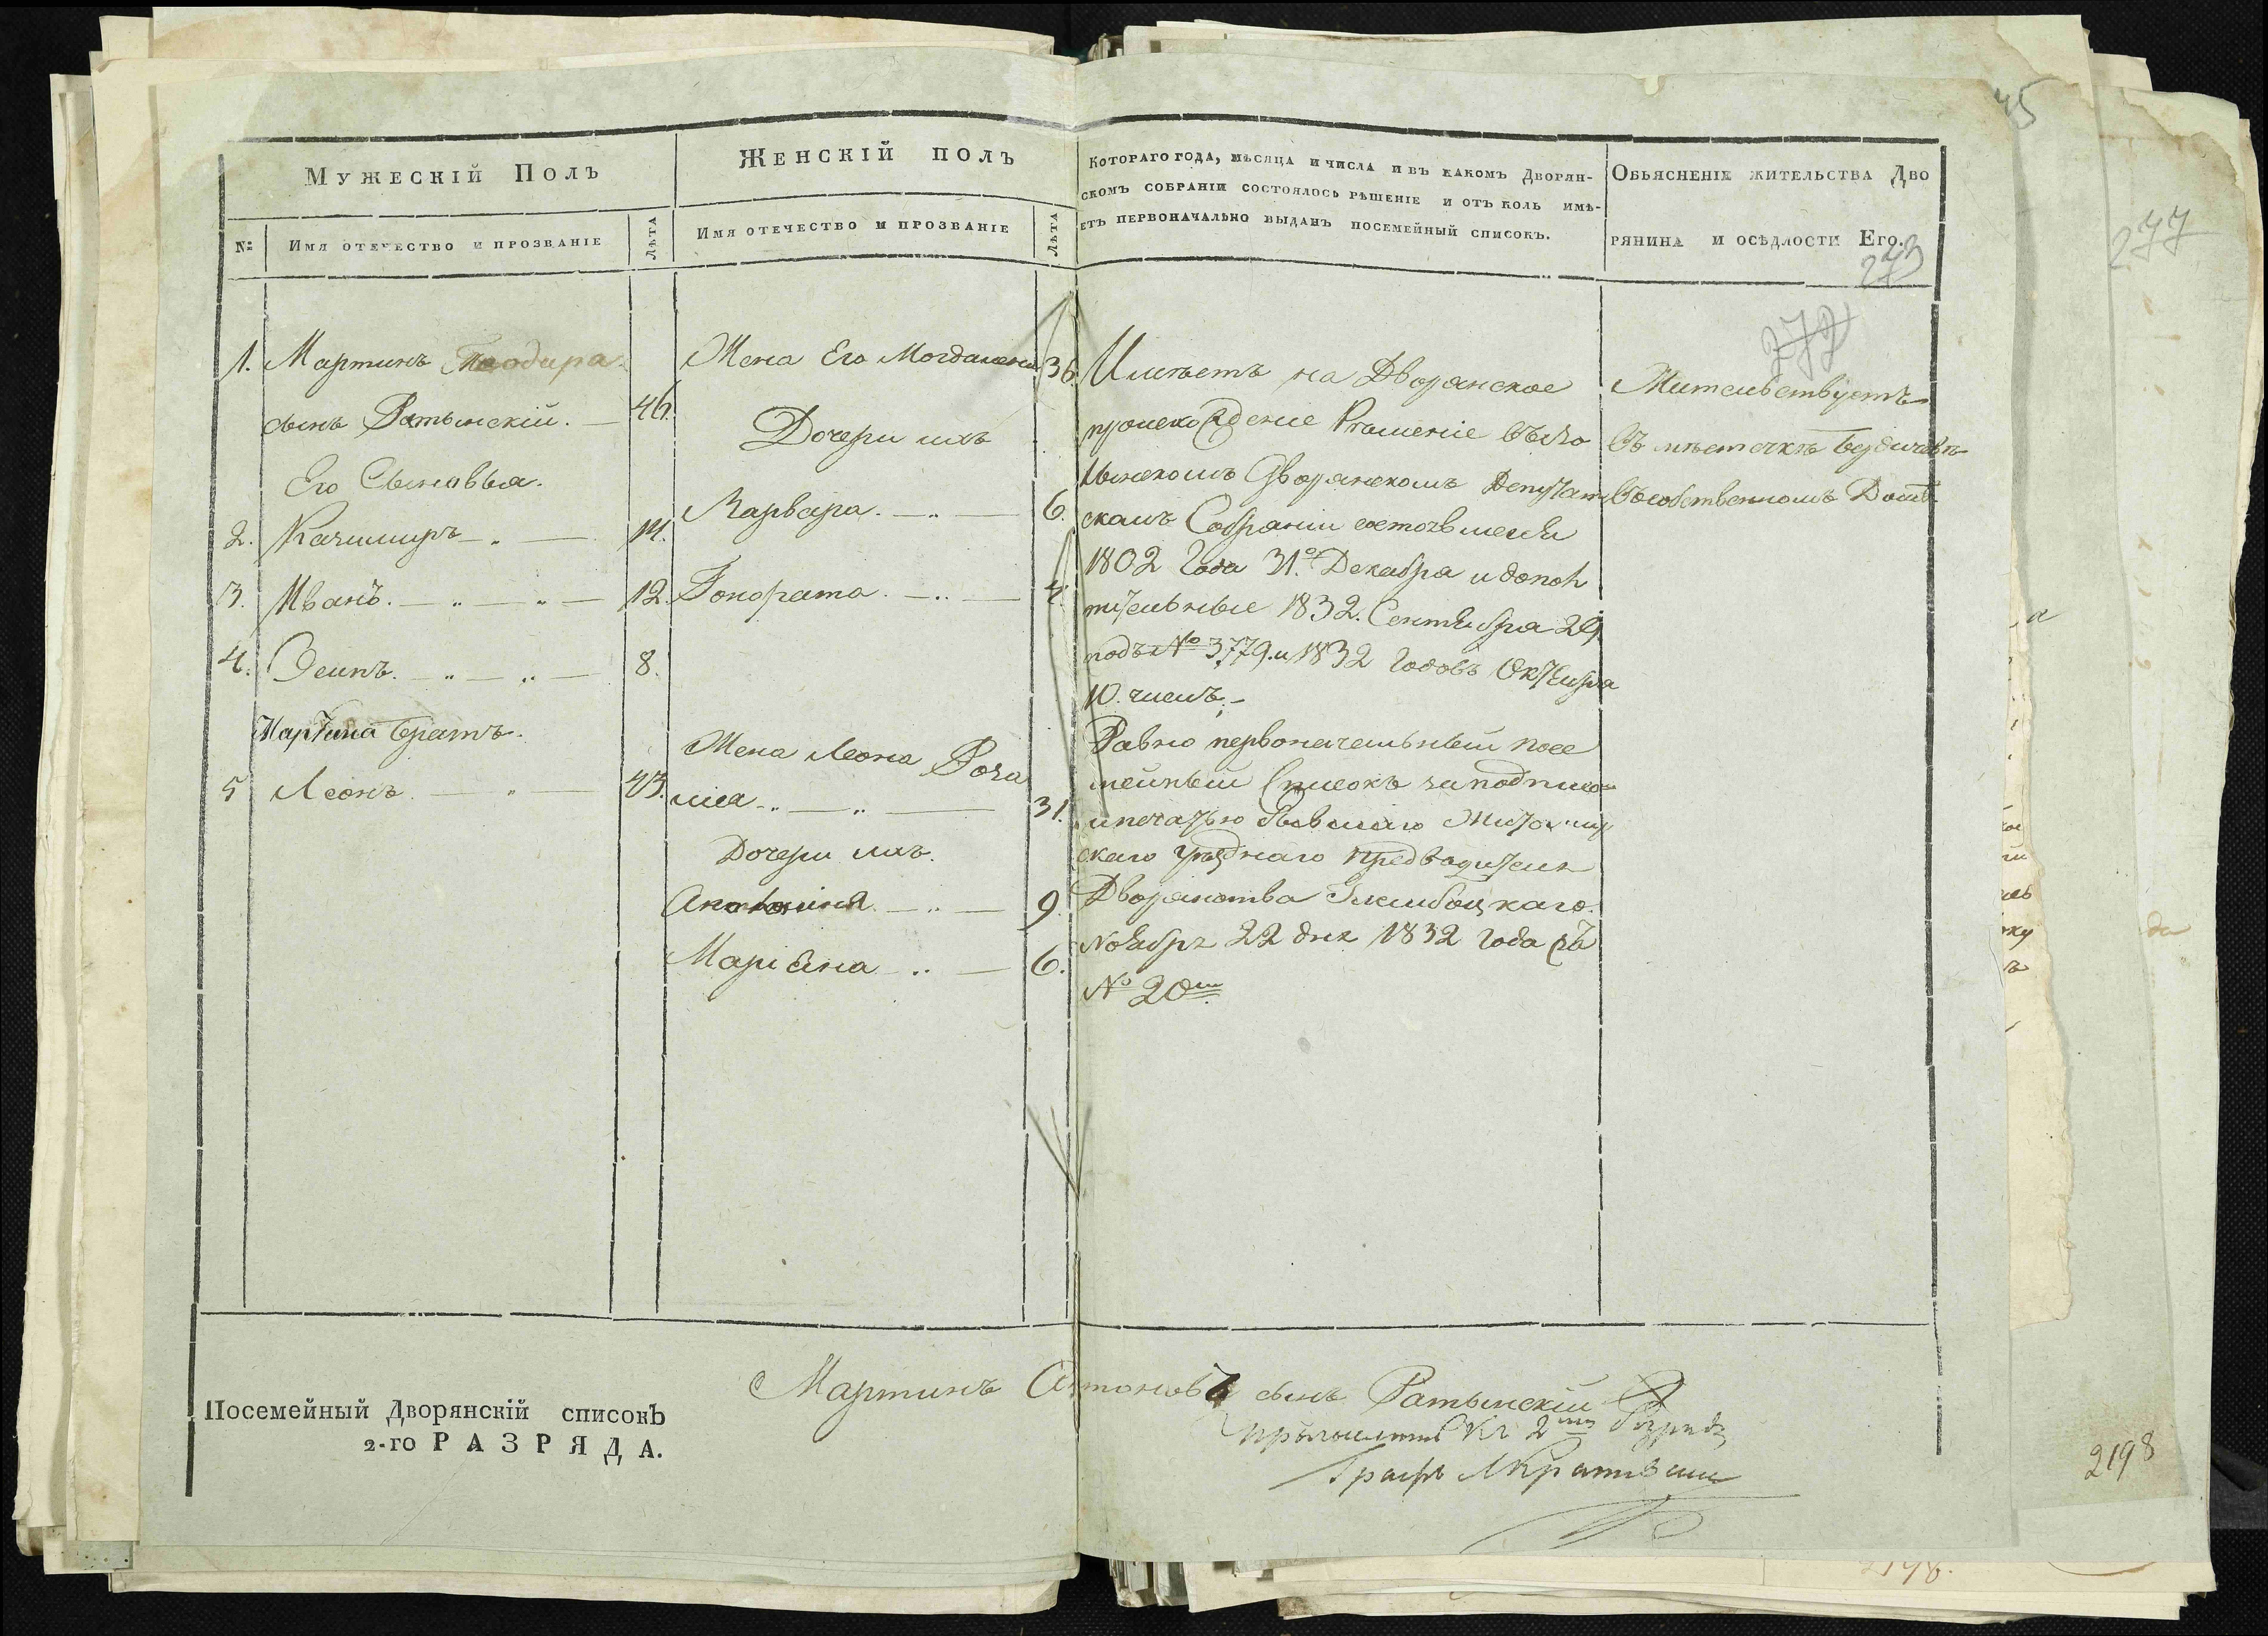 Мужескій Полъ
Женскій полъ
Котораго года, мѣсяца и числа и въ какомъ Дворян-
скомъ собраніи состоялось рѣшеніе и отъ коль имѣ-
етъ первоначально выданъ посемейный списокъ.
Обьясненіе жительства Дво
рянина и осѣдлости Его.
№ Имя отечество и прозваніе Лѣта
Имя отечество и прозваніе Лѣта
45
277
273
272
1. Мартинъ
сынъ Ратынскій. — 46.
Его Сыновья.
2. Казимиръ — „ — 14.
3. Иванъ. — „ — „ — 12.
4. Осипъ. — „ — „ — 8.
Мартина братъ.
5 Леонъ — „ — 43.
Жена Его Могдалена 36
Дочери ихъ
Варвара. — „ — 6.
Гонората. — „ — 4.
Жена Леона Роза
лія — „ — „ — 31.
Дочери ихъ.
Антонина — „ — 9.
Маріяна — „ — 6.
Имѣетъ на Дворянское
происхожденіе Рѣшеніе въ Во
лынскомъ Дворянскомъ Депутат
скомъ Собраніи состоявшееся
1802 Года 31.го Декабря и допол
нительные 1832. Сентября 29.
подъ № 3779. и 1832 Годовъ Октября
10. числъ; —
Равно первоначальный посе
мейный Списокъ за подписом
и печатью бывшаго Житомир
скаго уѣзднаго Предводителя
Дворянства Гленбоцкаго.
Ноября 22 дня 1832 Года за
№ 20м
Жительствуетъ
въ мѣстечкѣ Бердичевѣ
въ собственномъ Домѣ
Посемейный Дворянскій списокъ
2-го РАЗРЯДА.
Мартинъ Антоновъ сынъ Ратынскій
къ 2му Разряду
Графъ
2198